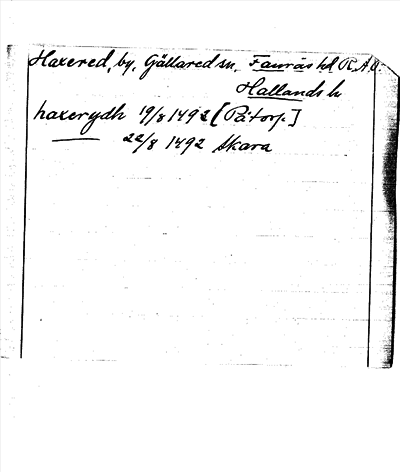 Haxered, by, Gällared sn. Faurås hd R.A.O.
Hallands l.
haxerydh 19/8 1492 [Påtorp]
22/8 1492 Skara